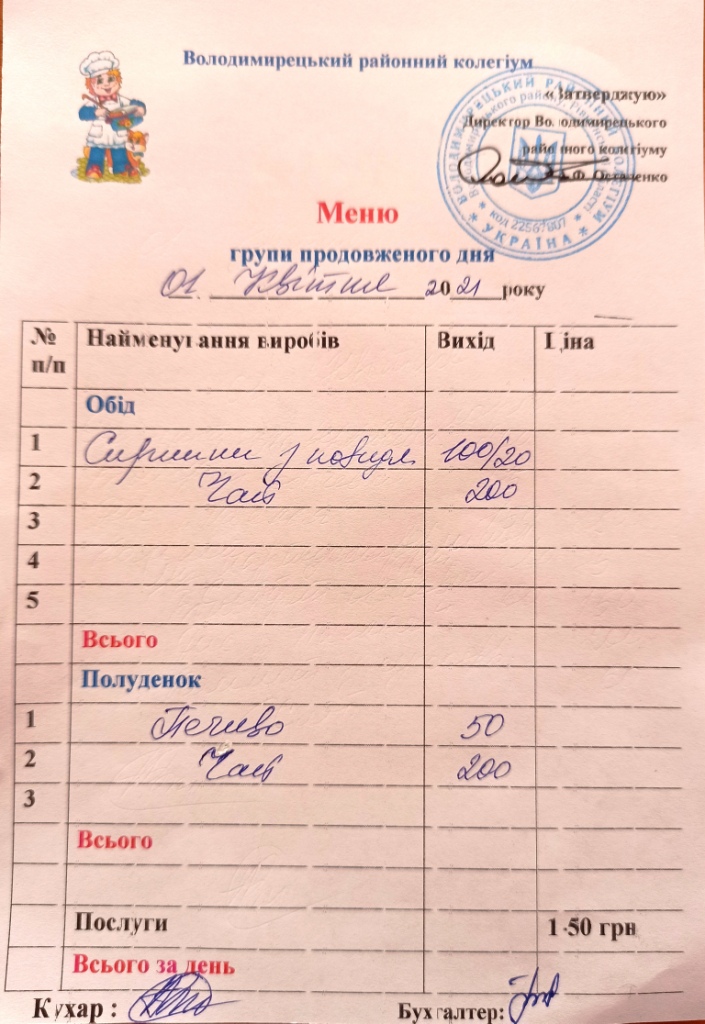 Володимирецький районний колегіум
«Затверджую»
Директор Володимирецького
районного колегіуму
Ф. Остапенко
ВОЛОДИМИРЕЦЬКИЙ РАЙОННИЙ КОЛЕГІУМ
код 22567807
УКРАЇНА
Меню
групи продовженого дня
01 Квітня 2021 року
№ п/п Найменування виробів Вихід Ціна
Обід
1 Сирники з повидл 100/20
2 Чай 200
3
4
5
Всього
Полуденок
1 Печиво 50
2 Чай 200
3
Всього
Послуги 1-50 грн
Всього за день
Кухар : Бухгалтер: